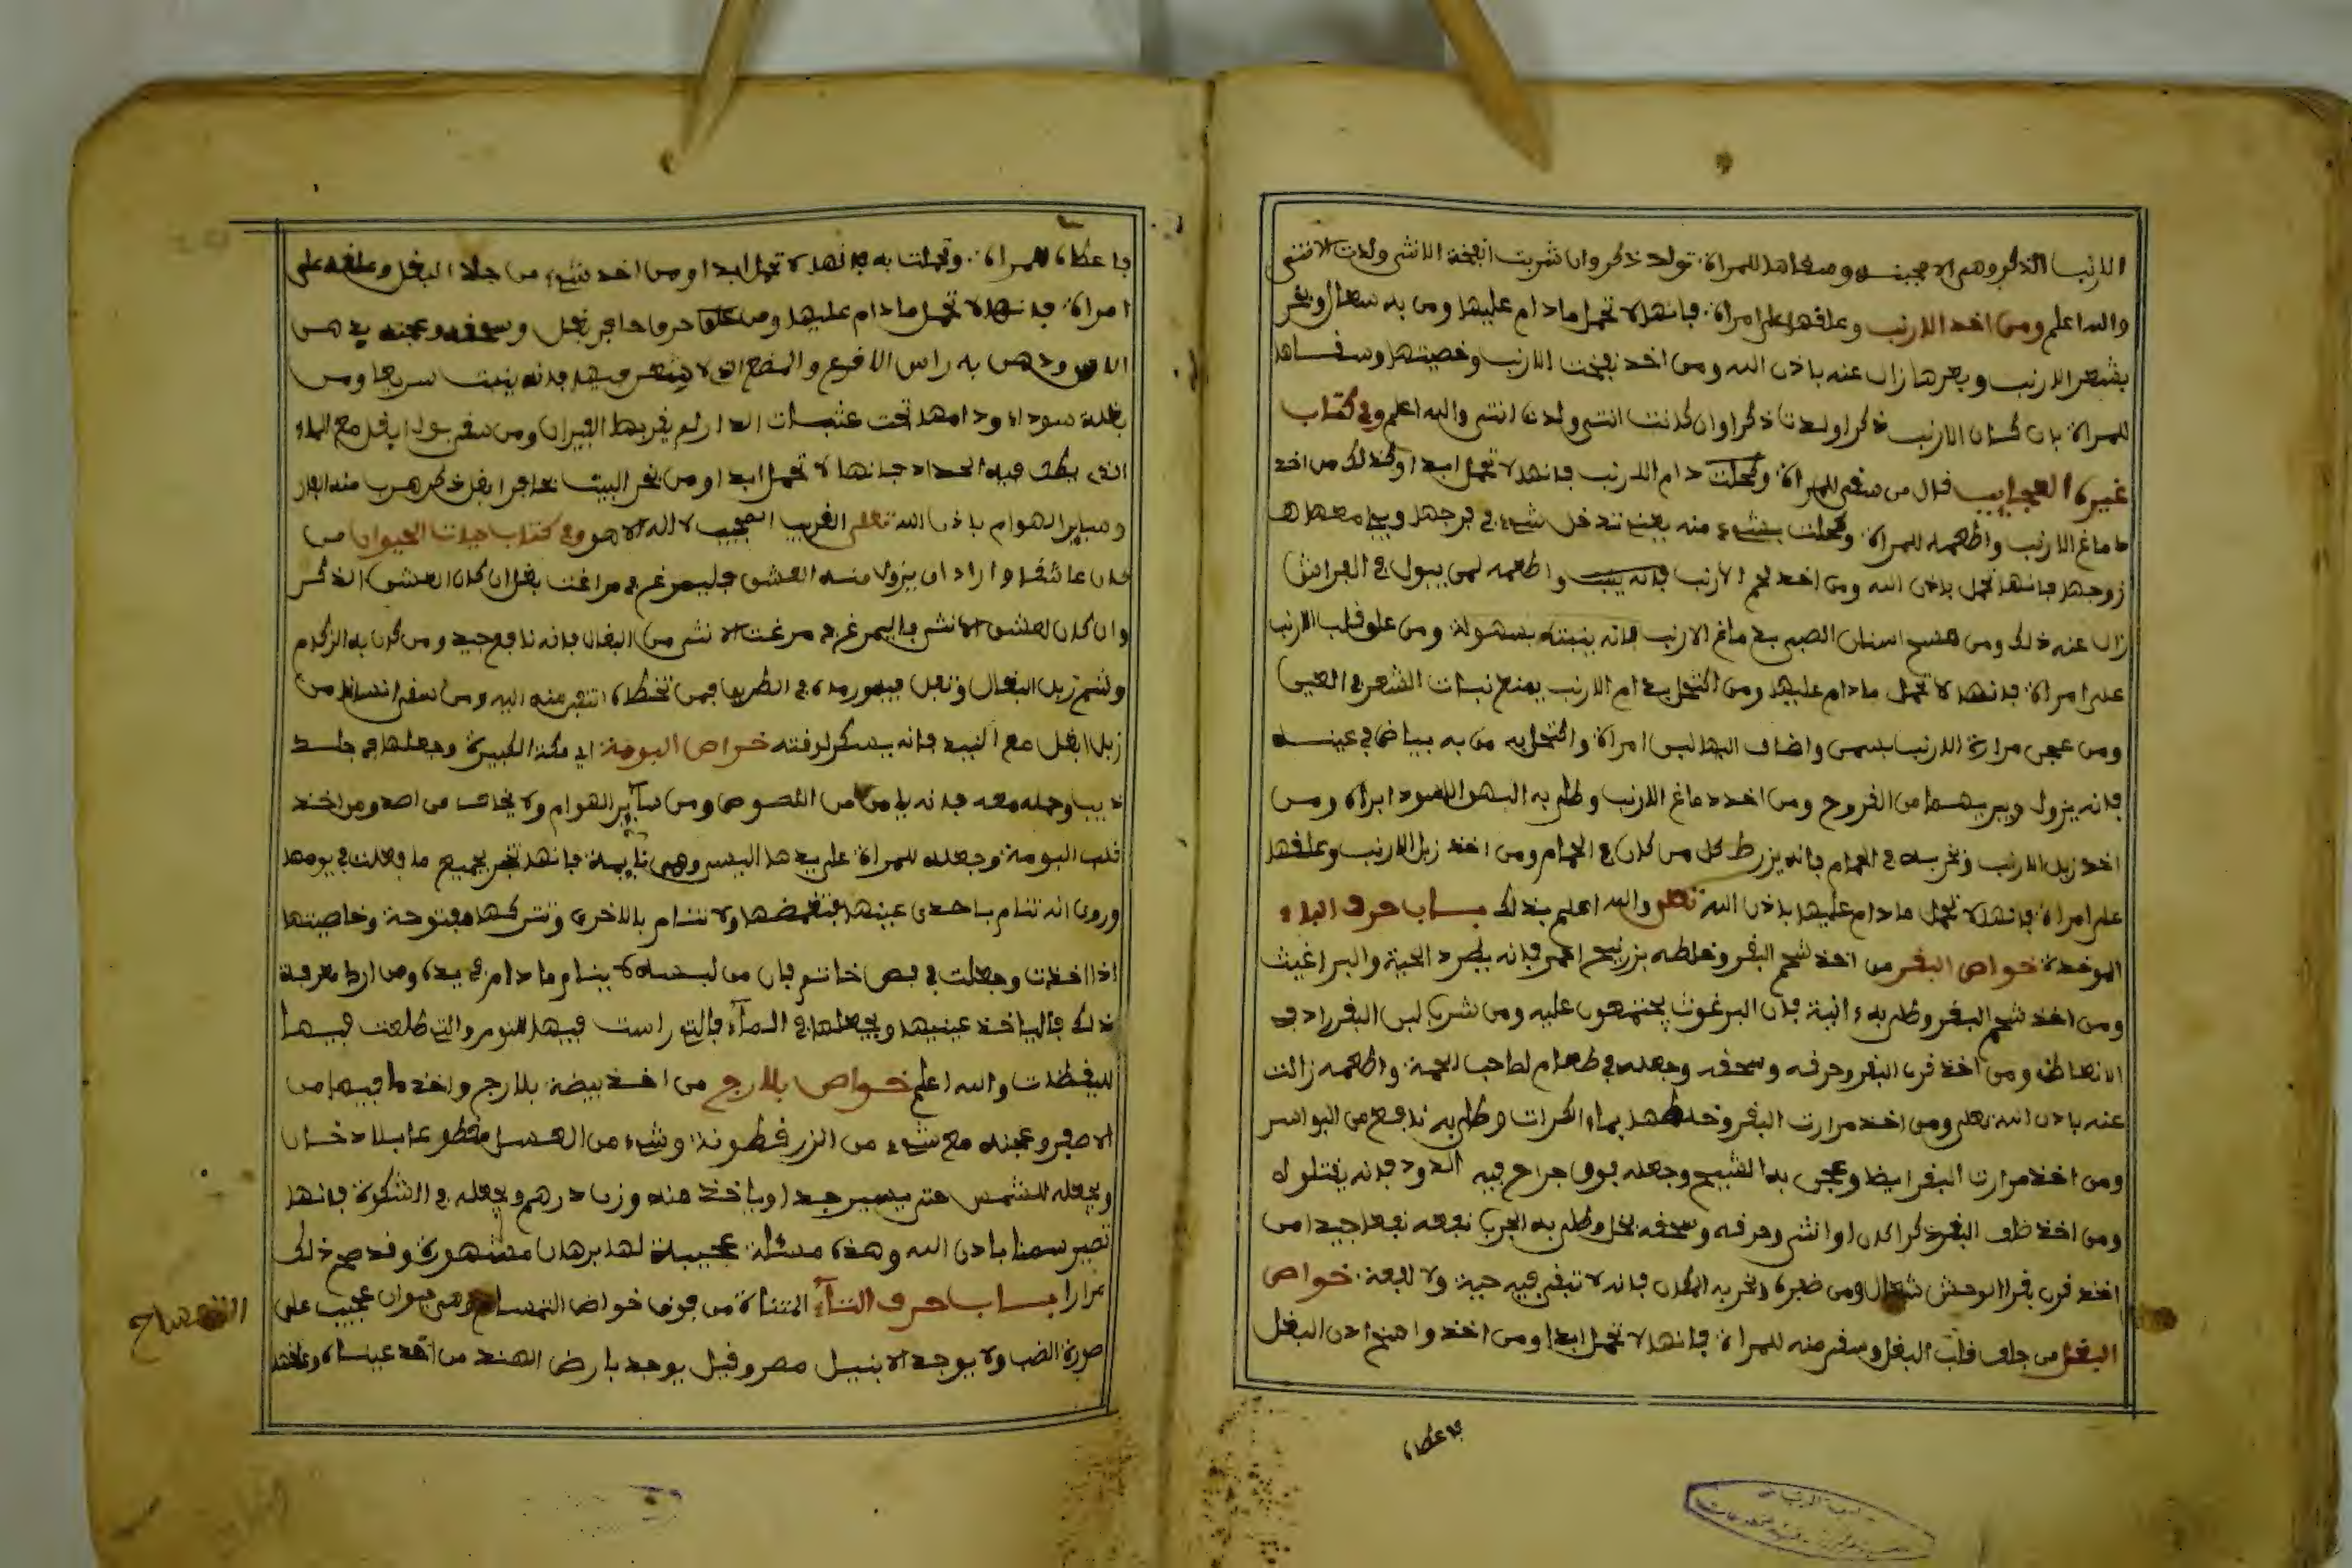 الارنب الذكر وهي الا مجبنه وسقاها للمراة تولد ذكر وان شربت انفخة الانثى ولدت الانثى
والله اعلم ومن اخذ الارنب وعلقها على امراة فانها لا تحمل ما دام عليها ومن به سعال وبخر
بشعر الارنب وبعرها زال عنه باذن الله ومن اخذ نفيخت الارنب وخصيتها وسقاها
للمراة بان كان الارنب ذكرا ولدت ذكرا وان كانت انثى ولدت انثى والله اعلم وفي كتاب
غيره العجايب قال من سقى للمراة وتحملت دام الارنب فانها لا تحمل ابدا وكذلك من اخذ
دماغ الارنب واطعمه للمراة وتحملت بشيء منه يعني تدخل شيء في فرجها ويجامعها
زوجها فانها تحمل باذن الله ومن اخذ لحم الارنب واطعمه لمن يبول في الفراش
زال عنه ذلك ومن مسح اسنان الصبي بدماغ الارنب فانه ينبته بسهولة ومن علق قلب الارنب
على امراة فانها لا تحمل ما دام عليها ومن اكتحل بدام الارنب يمنع نبات الشعر في العين
ومن عجن مرارة الارنب بسمن واضاف اليها لبن امراة واكتحل به من به بياض في عينه
فانه يزول ويبريهما من القروح ومن اخذ دماغ الارنب وطلى به البهق الاسود ابراه ومن
اخذ زبل الارنب وبخر به في الحمام فانه يزرط كل من كان في الحمام ومن اخذ زبل الارنب وعلقها
على امراة فانها لا تحمل ما دام عليها باذن الله تعلى والله اعلم بذلك باب حرف الباء
الموحدة خواص البقر من اخذ شحم البقر وخلطه بزرنيخ احمر فانه يطرد الحية والبراغيث
ومن اخذ شحم البقر وطلى به انية فان البرغوث يجتمعون عليه ومن شرب لبن البقر زاد في
الانعاظ ومن اخذ قرن البقر وحرقه وسحقه وجعله في طعام لصاحب الحمة واطعمه زالت
عنه باذن الله تعلى ومن اخذ مرارت البقر وخلطها بماء الكراث وطلى به نافع من البواسر
ومن اخذ مرارت البقر ايضا وعجن به الشيح وجعله فوق جراح فيه الدود فانه يقتلوك
ومن اخذ ظلف البقر ذكرا كان او انثى وحرقه وسحقه بخل وطلى به الجرب نفعه نفعا جيدا من
اخذ قرن بقر الوحش شمال ومن ظبره وبخر به المكان فانه لا تبقى فيه حية ولا لفعة خواص
البغل من جلف قلب البغل وسقى منه للمراة فانها لا تحمل ابدا ومن اخذ واهنج اذن البغل
فاعطاه
فاعطاه للمراة وتحملت به فانها لا تحمل ابدا ومن اخذ شيء من جلد البغل وعلقه على
امراة فانها لا تحمل ما دام عليها ومن حرق حافر بغل وسحقه وعجنه بدهن
الاس ودهن به راس الاقرع والموضع الذي لا شعر فيه فانه ينبت سريعا ومن
بغلة سوداء ودامها تحت عتبات الدار لم يقربها الفيران ومن سقى بول ابغل مع الماء
الذي يطفى فيه الحداد فانها لا تحمل ابدا ومن بخر البيت بحافر ابغل ذكر هرب منه الفار
وساير الهوام باذن الله تعلى القريب المجيب لا اله الا هو وفي كتاب حيات الحيوان من
كان عاشقا واراد ان يزول منه العشق فليمرغ في مراغت بغل ان كان العشق الذكر
وان كان لعشق الانثى فاليمرغ في مرغت الانثى من البغال فانه نافع جيد ومن كان به الزكام
وشم زبل البغال وتفل فيه ورماه في الطريق فمن تخطاه انتقل منه اليه ومن سقى انسانا من
زبل ابغل مع النبيذ فانه يسكر لوقته خواص البومة اي مكة الكبيرة وجعلها في جلد
ذيب وحمله معه فانه يامن من اللصوص ومن ساير الهوام ولا يخاف من احد ومن اخذ
قلب البومة وجعله للمراة على يدها اليسر وهي نايمة فانها تخبر بجميع ما فعلت في يومها
وروى انه تنام باحدى عينها فتغمضها ولا تنام بالاخرى وتتركها مفتوحة وخاصيتها
اذا اخذت وجعلت في فص خاتم فان من لبسه لا ينام ما دام في يده ومن اراد معرفة
ذلك فالياخذ عينيها ويجعلها في الماء فالتي راست فيها للنوم والتي طلعت فيها
لليقظات والله اعلم خواص بلارج من اخذ بيضة بلارج واخذ ما فيها من
الاصفر وعجنه مع شيء من الزرقطونة وشيء من العسل مقطوعا بلا دخان
ويجعله للشمس حتى يصير جيدا وياخذ منه وزن درهم ويجعله في الشكوة فانها
تصير سمنا باذن الله وهذه مسئلة عجيبة لها برهان مشهورة وقد صح ذلك
مرارا باب حرف التاء المثناة من فوق خواص التمساح وهي حيوان عجيب على
صورة الضب ولا يوجد الا بنيل مصر وقيل يوجد بارض الهند من اخذ عيناه وعلقها
التمساح